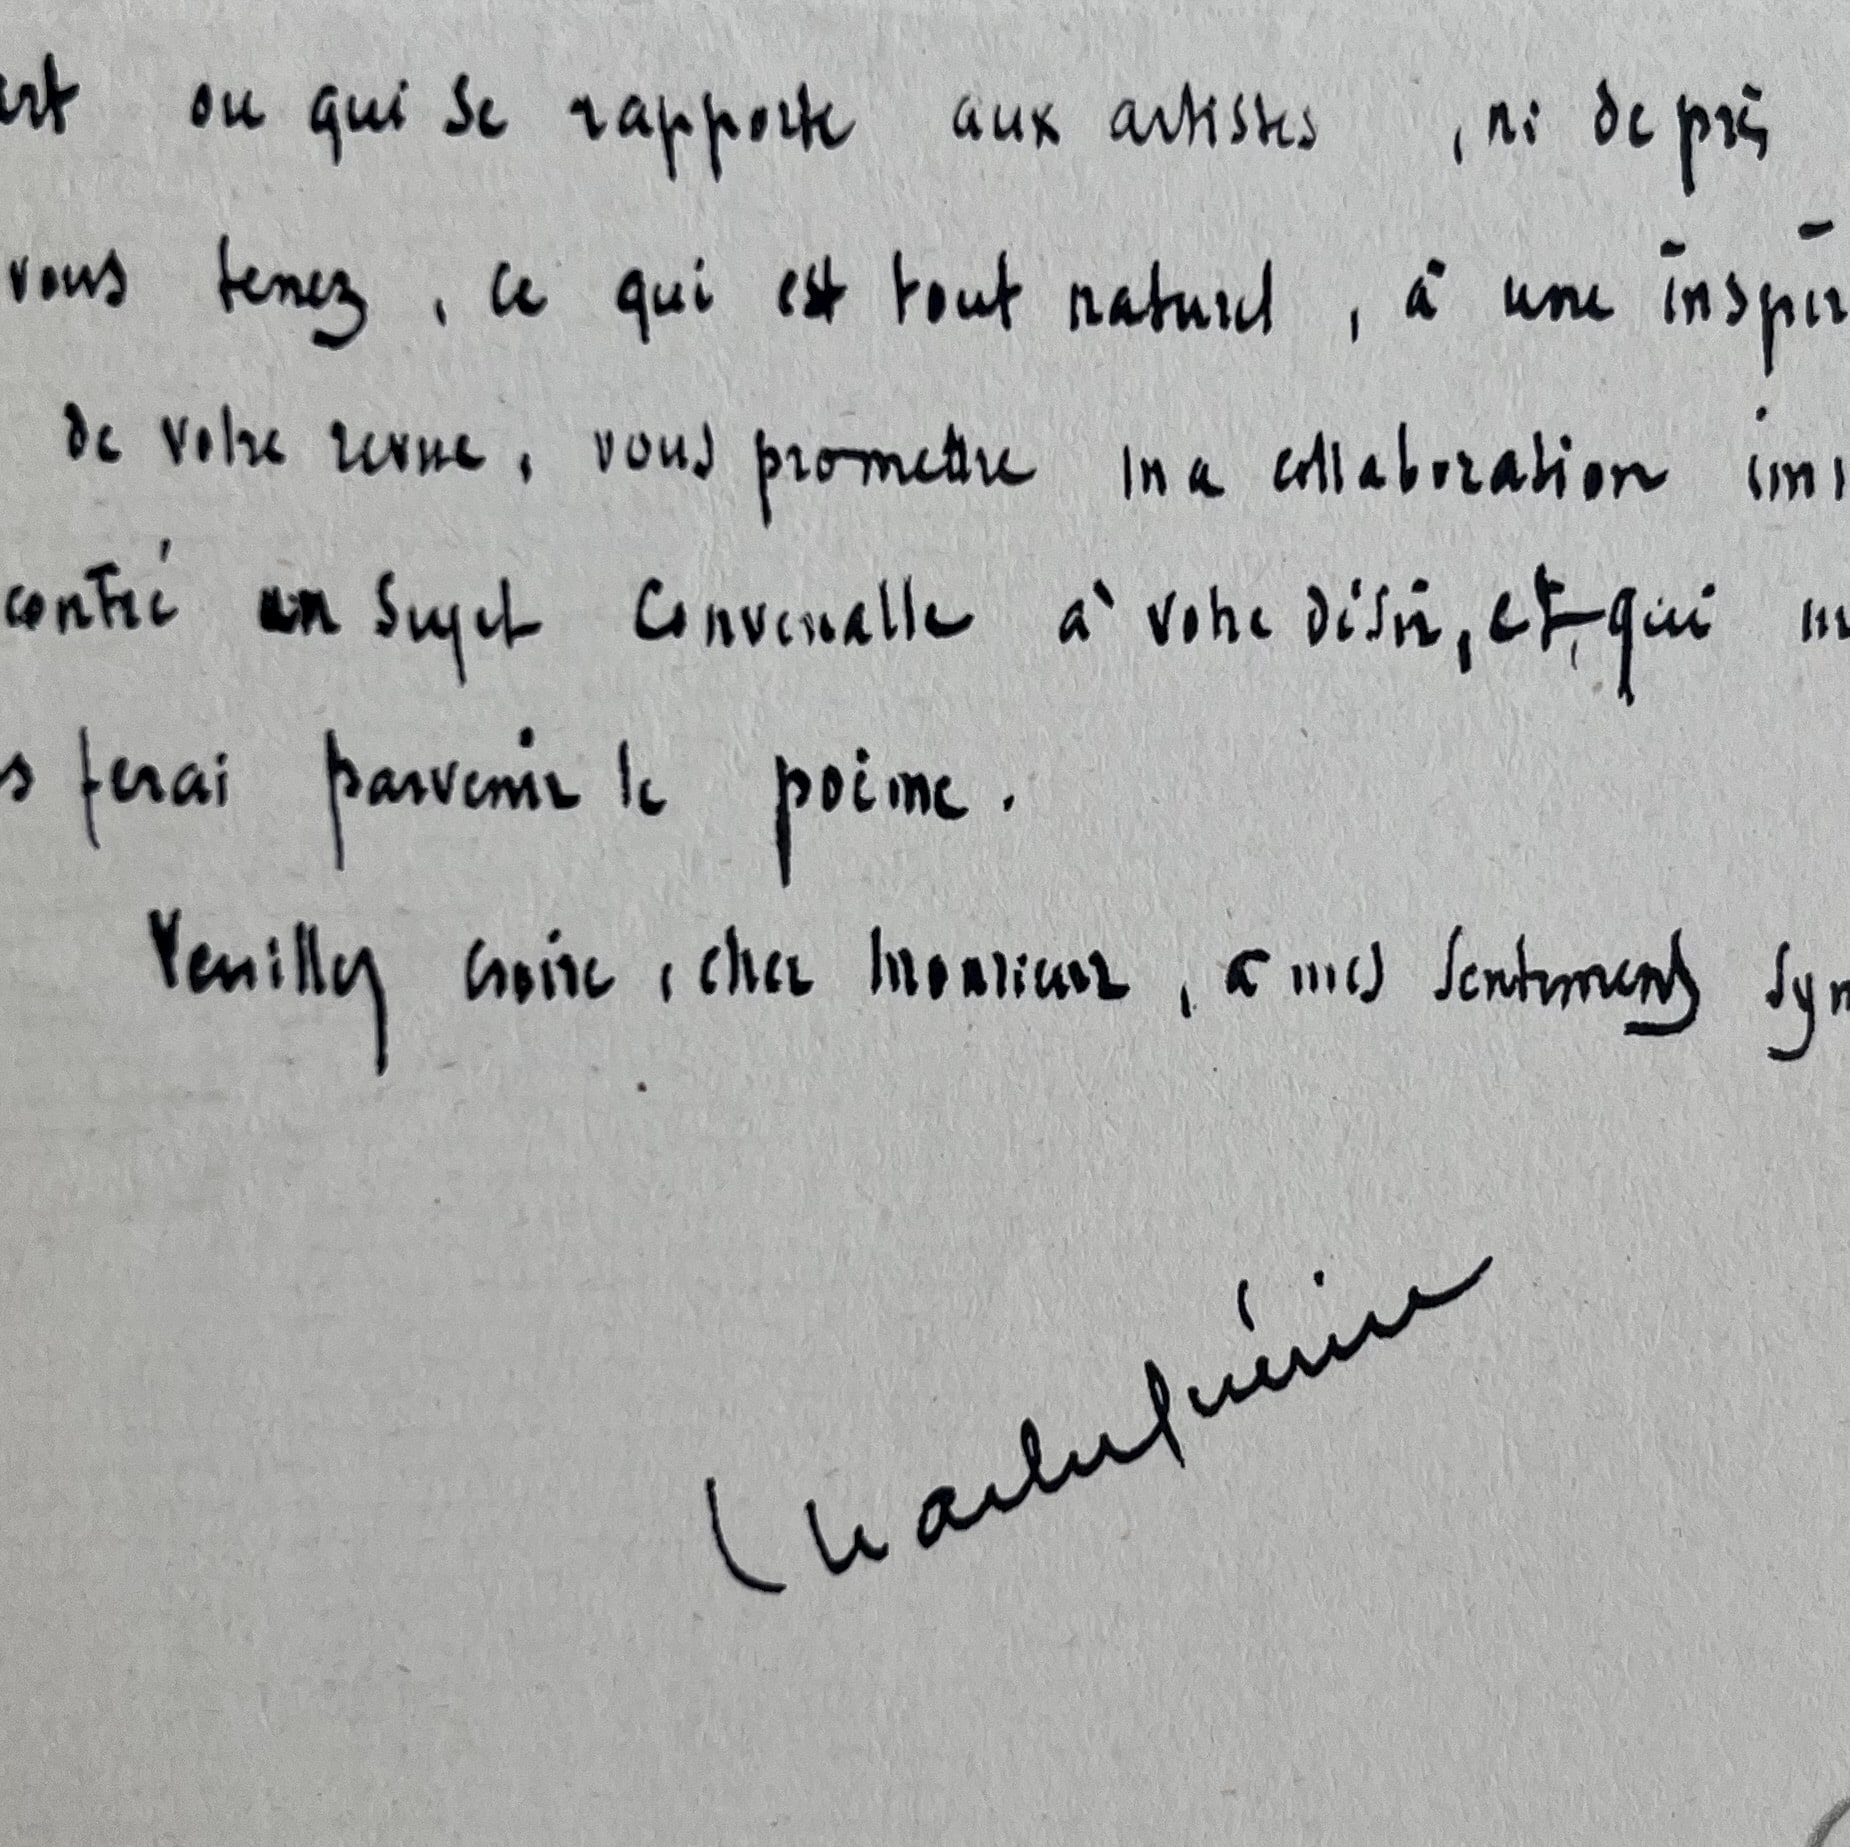 art ou qui se rapporte aux artistes , ni de près
vous tenez, ce qui est tout naturel, à une inspir
de votre revue, vous promettre ma collaboration imm
contré un sujet convenable à votre désir, et qui m
s ferai parvenir le poème.
Veuillez croire, cher Monsieur, à mes sentiments sym
Charles Guérin